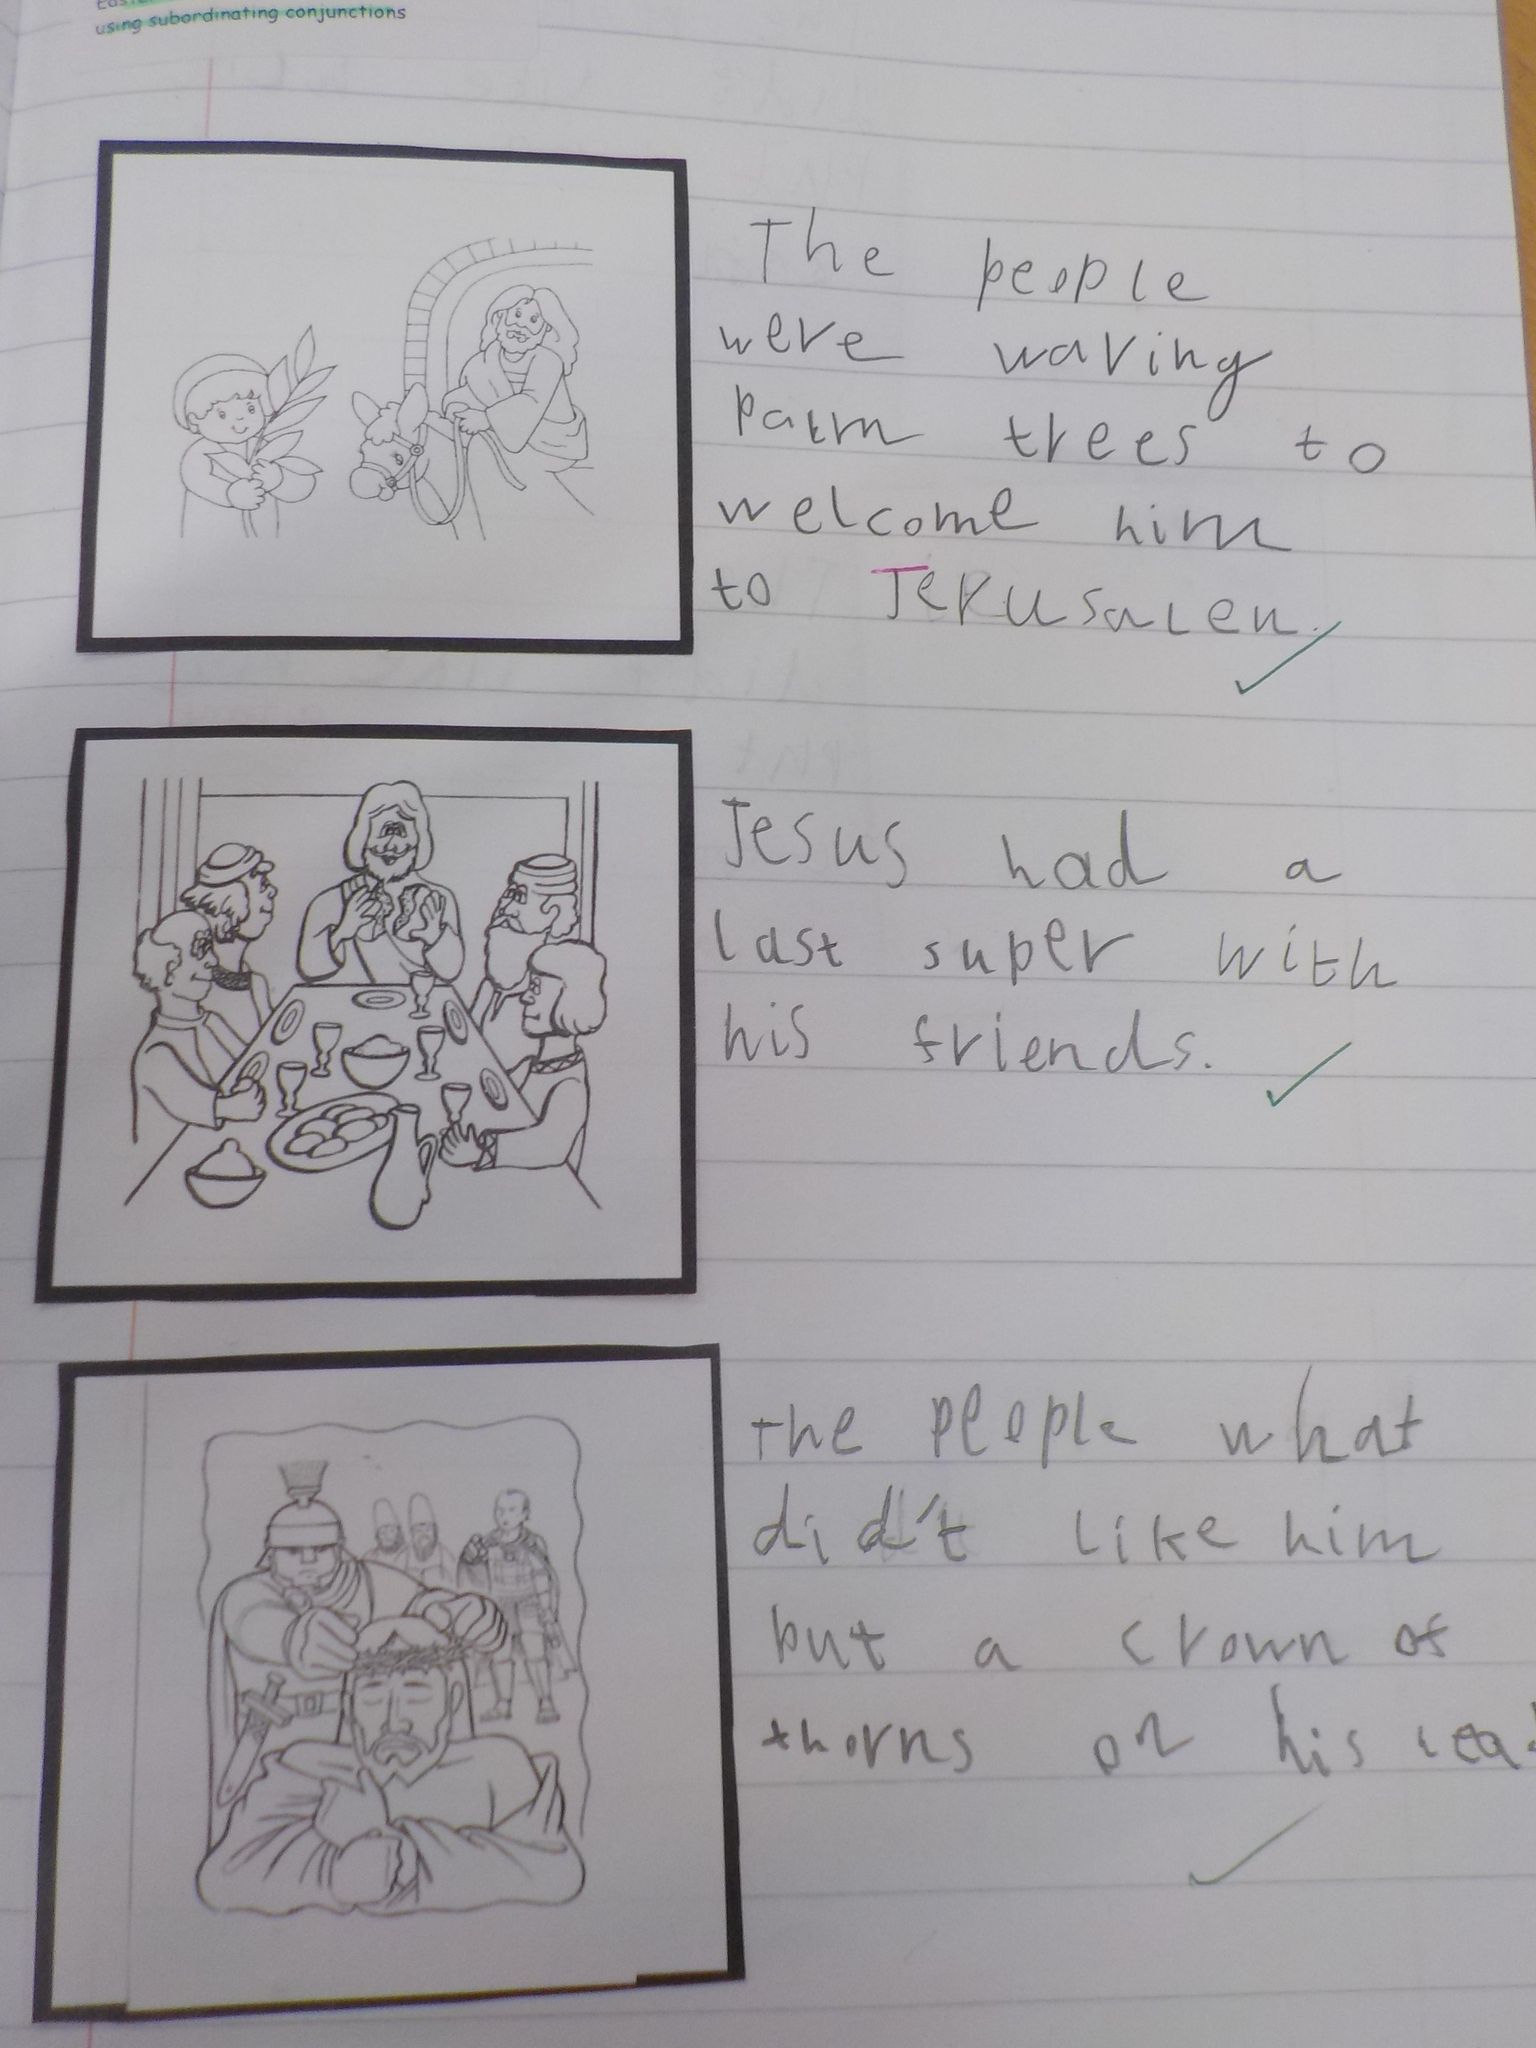 using subordinating conjunctions
The people
were waving
parm trees to
welcome him
to Jerusalen.
Jesus had a
last super with
his friends.
the people what
did't like him
but a crown of
thorns on his